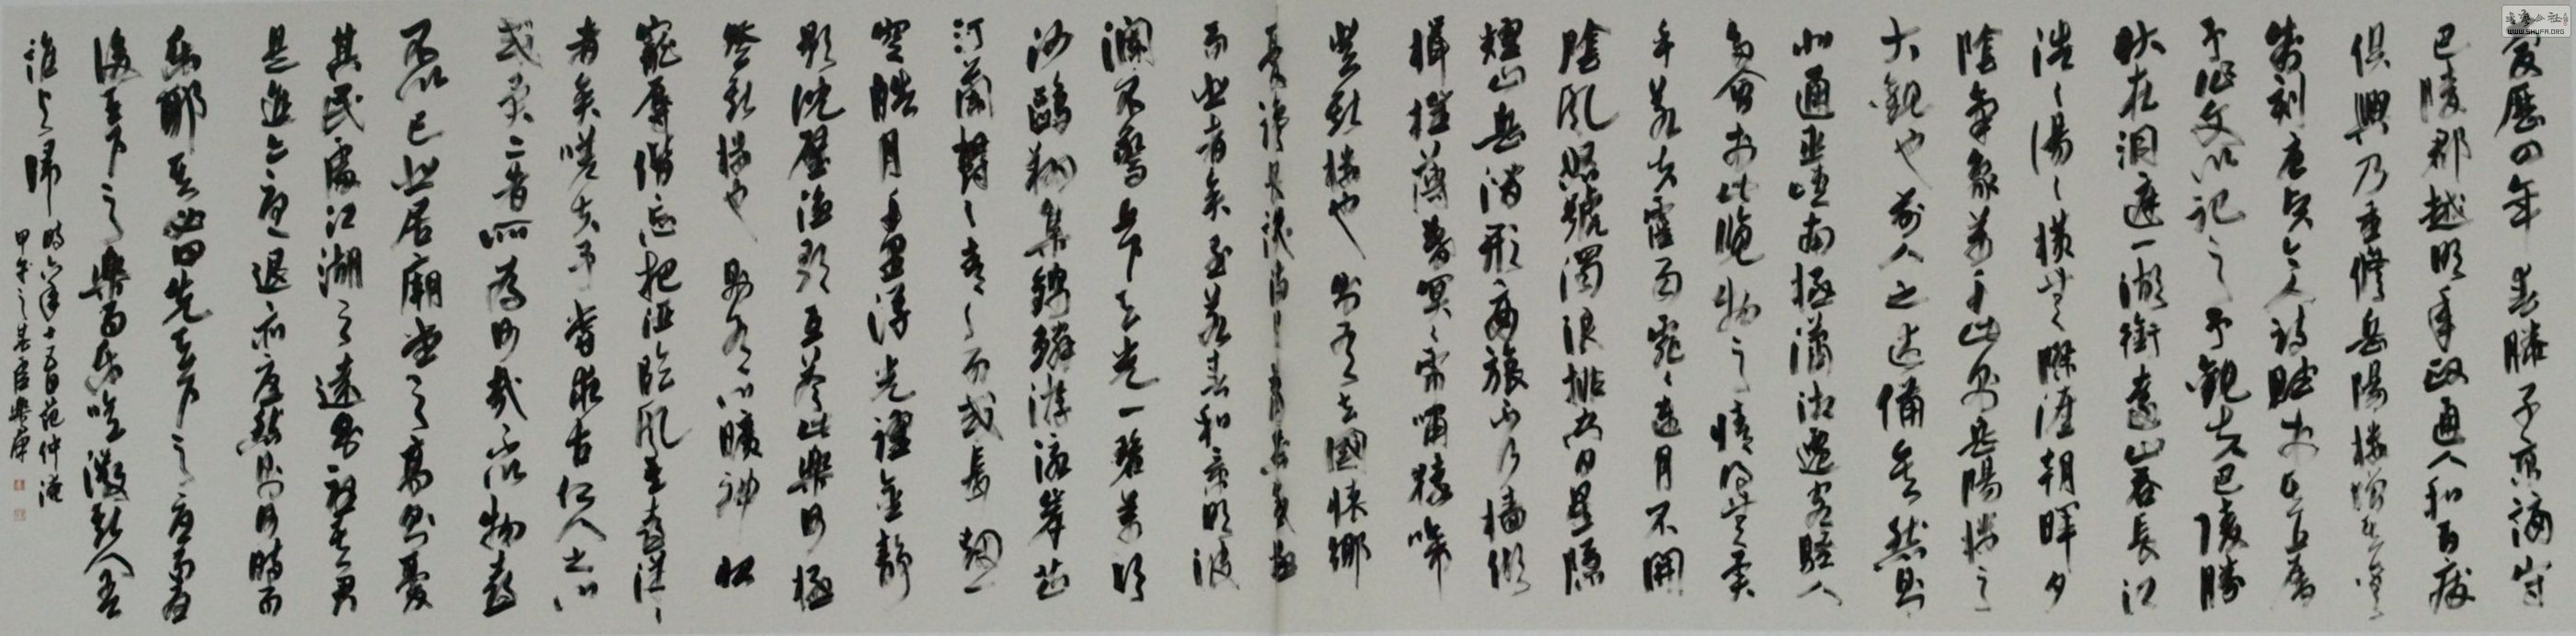 慶歷四年春滕子京謫守
巴陵郡越明年政通人和百廢
俱興乃重修岳陽樓增其舊
制刻唐賢今人詩賦於其上屬
予作文以記之予觀夫巴陵勝
狀在洞庭一湖銜遠山吞長江
浩々湯々橫無際涯朝暉夕
陰氣象萬千此則岳陽樓之
大觀也前人之述備矣然則
北通巫峽南極瀟湘遷客騷人
多會於此覽物之情得無異
乎若夫霪雨霏々連月不開
陰風怒號濁浪排空日星隱
耀山岳潛形商旅不行檣傾
楫摧薄暮冥々虎嘯猿啼
登斯樓也則有去國懷鄉
憂讒畏譏滿目蕭然感極
而悲者矣至若春和景明波
瀾不驚上下天光一碧萬頃
沙鷗翔集錦鱗游泳岸芷
汀蘭郁々青々而或長煙一
空皓月千里浮光躍金靜
影沉璧漁歌互答此樂何極
登斯樓也則有心曠神怡
寵辱偕忘把酒臨風其喜洋々
者矣嗟夫予嘗求古仁人之心
或異二者之為何哉不以物喜
不以己悲居廟堂之高則憂
其民處江湖之遠則憂其君
是進亦憂退亦憂然則何時而
樂耶其必曰先天下之憂而憂
後天下之樂而樂噫微斯人吾
誰與歸
時六年十五日范仲淹
甲午之
WWW.SHUFA.ORG